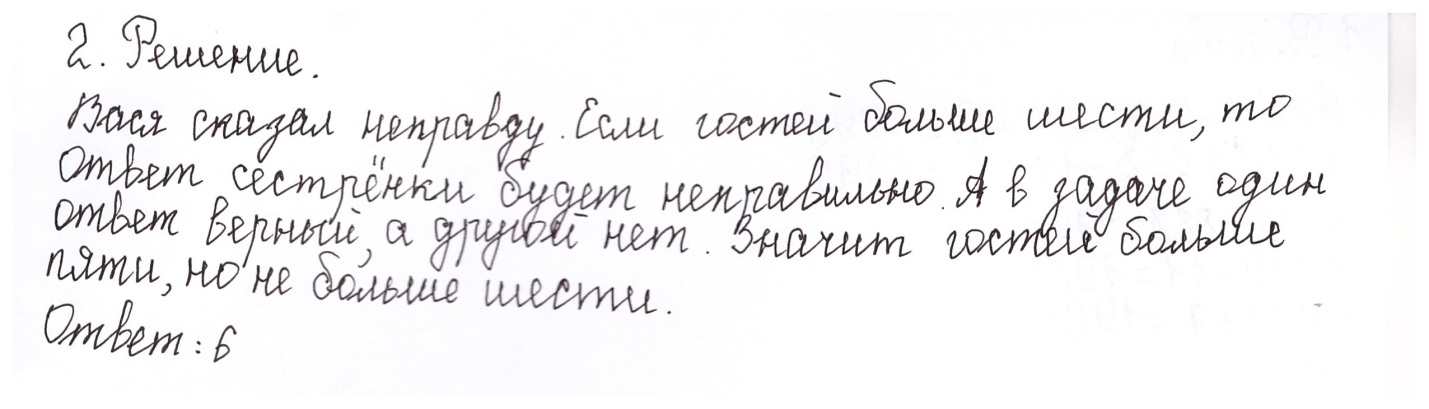 2. Решение.
Вася сказал неправду. Если гостей больше шести, то
ответ сестрёнки будет неправильно. А в задаче один
ответ верный, а другой нет. Значит гостей больше
пяти, но не больше шести.
Ответ: 6